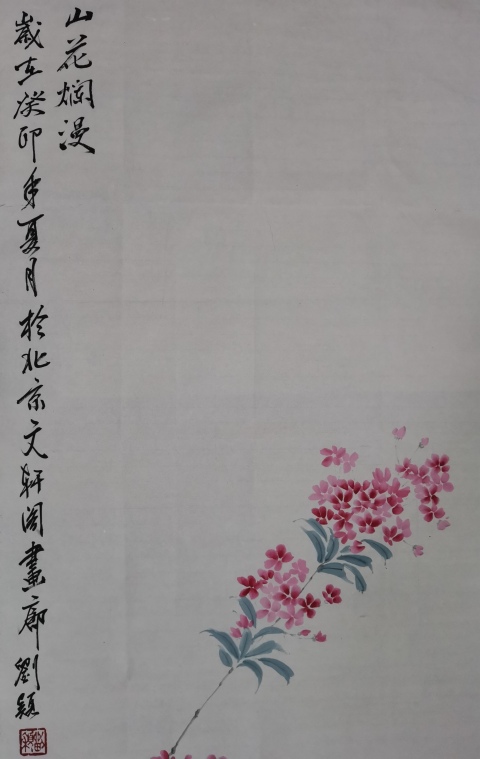 山花烂漫
岁在癸卯年夏月於北京文轩阁畫廊劉颖